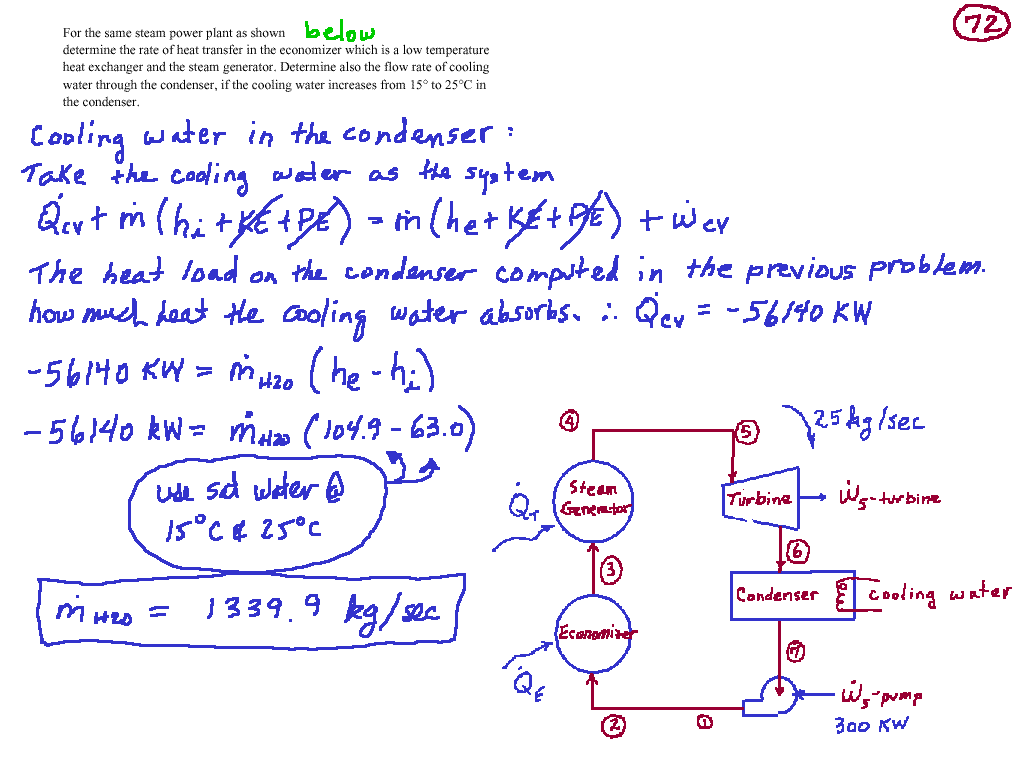 72
For the same steam power plant as shown below
determine the rate of heat transfer in the economizer which is a low temperature
heat exchanger and the steam generator. Determine also the flow rate of cooling
water through the condenser, if the cooling water increases from 15° to 25°C in
the condenser.
Cooling water in the condenser :
Take the cooling water as the system
Q̇cv + ṁ (hi + KE + PE) = ṁ (he + KE + PE) + Ẇcv
The heat load on the condenser computed in the previous problem.
how much heat the cooling water absorbs. ∴ Q̇cv = -56140 KW
-56140 KW = ṁH2O (he - hi)
-56140 kW = ṁH2O (104.9 - 63.0)
use sat water @
15°C & 25°C
ṁH2O = 1339.9 kg/sec
4
5
25 kg/sec
Steam
Generator
Q̇T
Turbine
Ẇs-turbine
6
3
Condenser
cooling water
Economizer
Q̇E
7
Ẇs-pump
300 KW
2
1